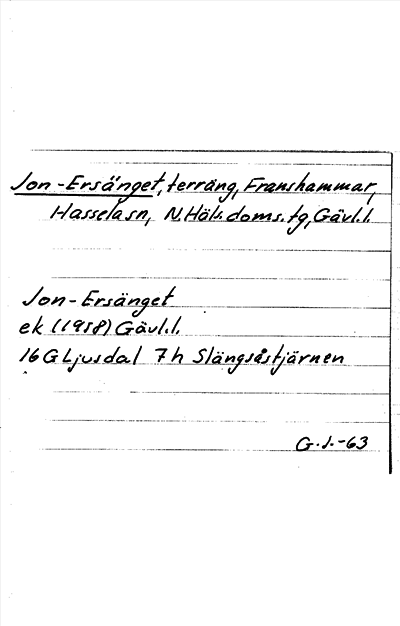 Jon-Ersänget, terräng, Franshammar,
Hassela sn, N.Häls. doms.tg, Gävl.l.
Jon-Ersänget
ek (1958) Gävl.l.
16 G Ljusdal 7h Slängsåstjärnen
G.I.-63